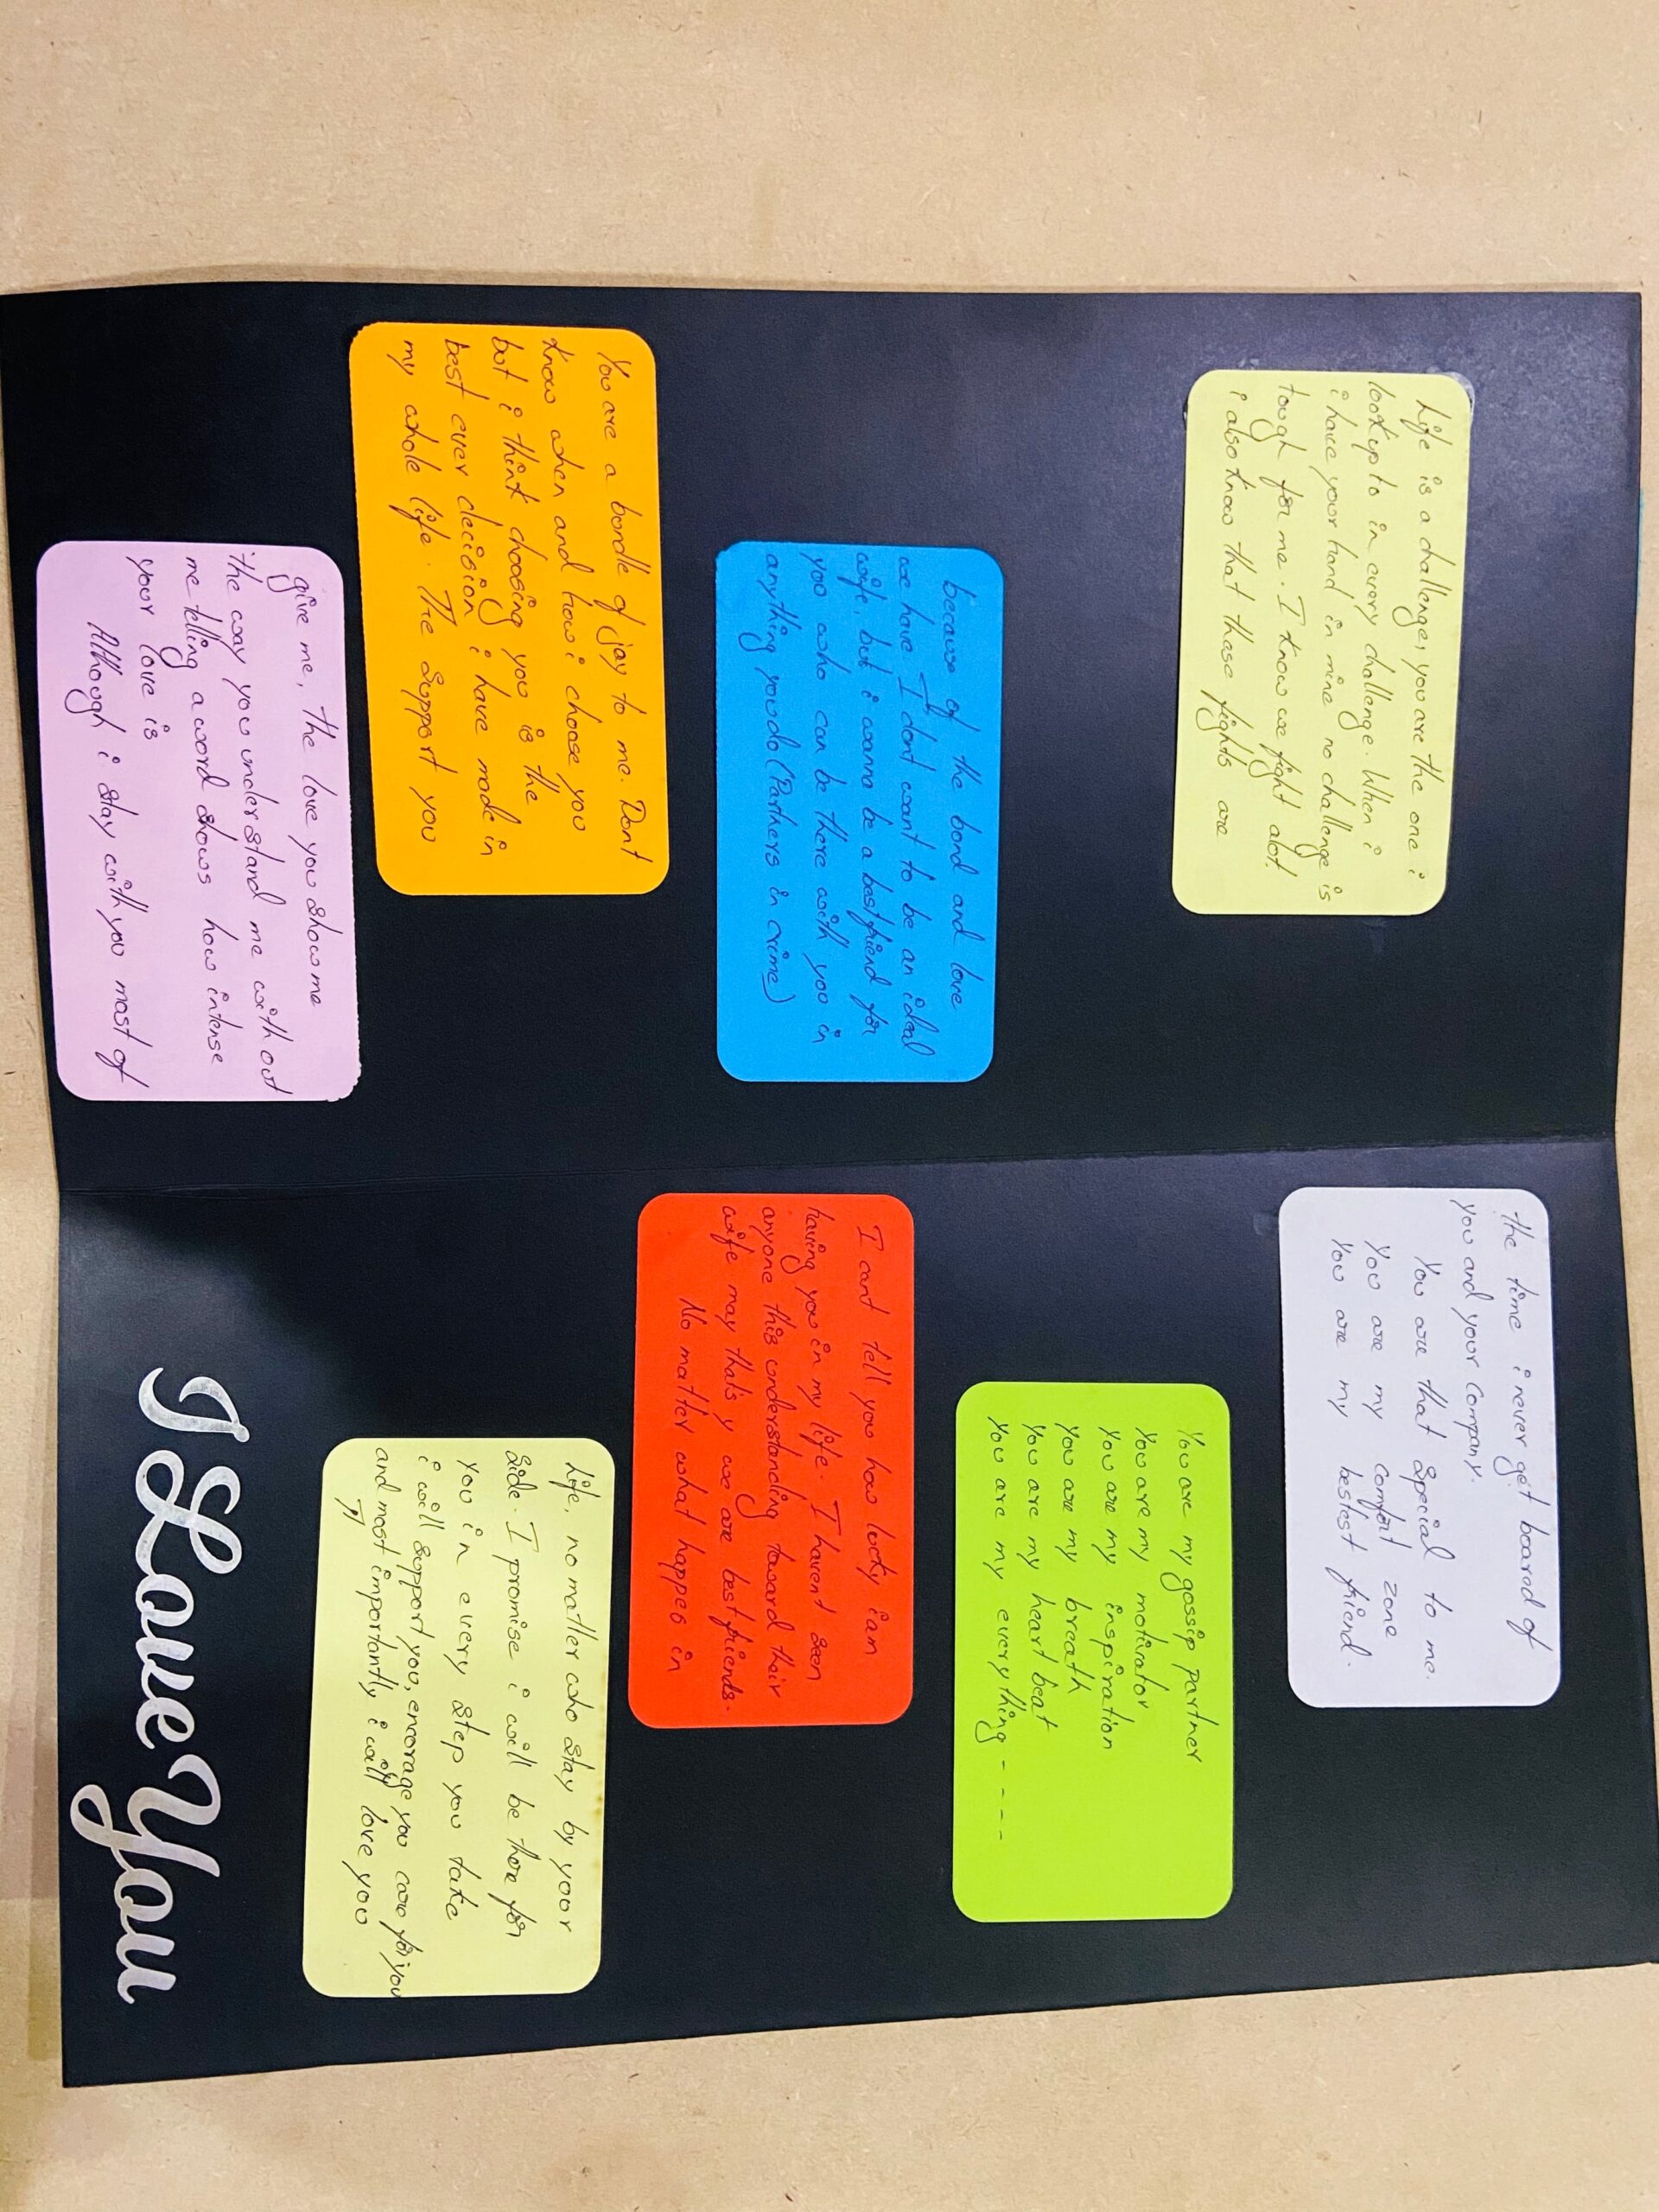 Life is a challenge, you are the one i
look up to in every challenge. When i
i have your hand in mine no challenge is
tough for me. I know we fight alot.
i also know that these fights are
because of the bond and love
we have I dont want to be an ideal
wife, but i wanna be a bestfriend for
you who can be there with you in
anything you do (Partners in crime)
You are a bondle of joy to me. Dont
know when and how i choose you
but i think choosing you is the
best ever decision i have made in
my whole life. The support you
give me, the love you show me
the way you understand me with out
me telling a word shows how intense
your love is
Although i stay with you most of
the time i never get boared of
you and your company.
You are that special to me.
You are my comfort zone
You are my bestest friend.
You are my gossip partner
You are my motivator
You are my inspiration
You are my breath
You are my heart beat
You are my everything - - - -
I cant tell you how lucky i am
having you in my life. I havent seen
anyone this understanding toward their
wife may thats y we are best friends.
No matter what happes in
life, no matter who stay by your
side. I promise i will be there for
you in every step you take
i will support you, encorage you care for you
and most importantly i will love you
I Love You